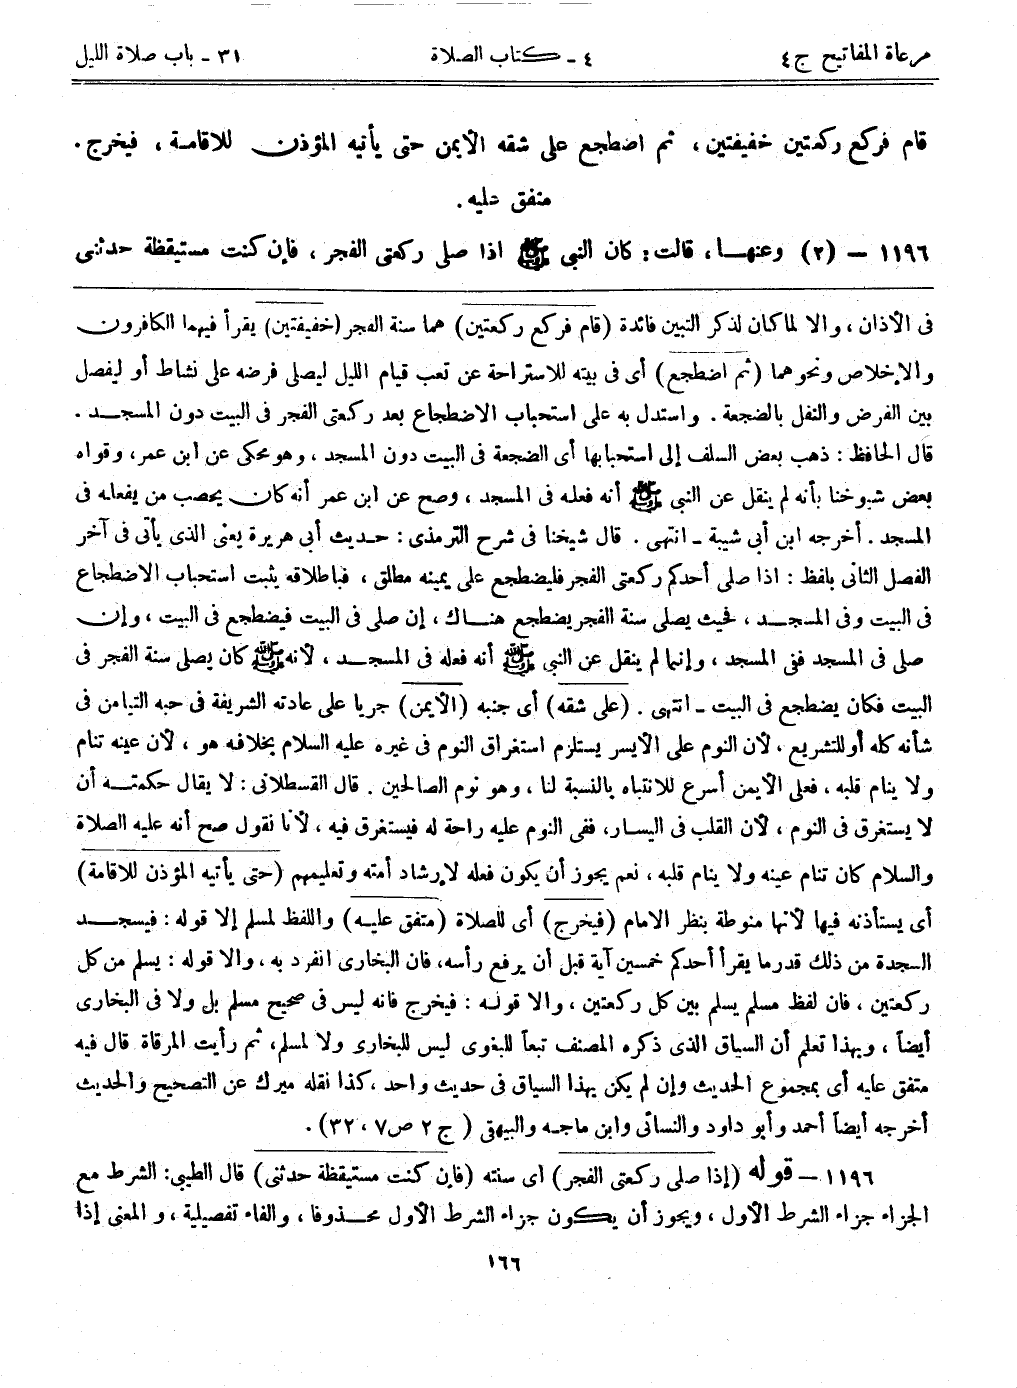 مرعاة المفاتيح ج ٤
٤ - كتاب الصلاة
٣١ - باب صلاة الليل
قام فركع ركعتين خفيفتين، ثم اضطجع على شقه الأيمن حتى يأتيه المؤذن للاقامة، فيخرج.
متفق عليه.
١١٩٦ – (٢) وعنها، قالت: كان النبي ﷺ اذا صلى ركعتى الفجر، فإن كنت مستيقظة حدثنى
فى الأذان، والا لما كان لذكر التبين فائدة (قام فركع ركعتين) هما سنة الفجر (خفيفتين) يقرأ فيهما الكافرون
والإخلاص ونحوهما (ثم اضطجع) أى فى بيته للاستراحة عن تعب قيام الليل ليصلى فرضه على نشاط أو ليفصل
بين الفرض والنفل بالضجعة. واستدل به على استحباب الاضطجاع بعد ركعتى الفجر فى البيت دون المسجد.
قال الحافظ: ذهب بعض السلف إلى استحبابها أى الضجعة فى البيت دون المسجد، وهو محكى عن ابن عمر، وقواه
بعض شيوخنا بأنه لم ينقل عن النبي ﷺ أنه فعله فى المسجد، وصح عن ابن عمر أنه كان يحصب من يفعله فى
المسجد. أخرجه ابن أبي شيبة - انتهى. قال شيخنا فى شرح الترمذى: حديث أبي هريرة يعنى الذى يأتى فى آخر
الفصل الثانى بلفظ: اذا صلى أحدكم ركعتى الفجر فليضطجع على يمينه مطلق، فباطلاقه يثبت استحباب الاضطجاع
فى البيت وفى المسجد، فحيث يصلى سنة الفجر يضطجع هناك، إن صلى فى البيت فيضطجع فى البيت، وإن
صلى فى المسجد ففى المسجد، وإنما لم ينقل عن النبي ﷺ أنه فعله فى المسجد، لأنه ﷺ كان يصلى سنة الفجر فى
البيت فكان يضطجع فى البيت - انتهى. (على شقه) أى جنبه (الأيمن) جريا على عادته الشريفة فى حبه التيامن فى
شأنه كله أو للتشريع، لأن النوم على الأيسر يستلزم استغراق النوم فى غيره عليه السلام بخلافه هو، لأن عينه تنام
ولا ينام قلبه، فعلى الأيمن أسرع للانتباه بالنسبة لنا، وهو نوم الصالحين. قال القسطلانى: لا يقال حكمته أن
لا يستغرق فى النوم، لأن القلب فى اليسار، ففى النوم عليه راحة له فيستغرق فيه، لأنا نقول صح أنه عليه الصلاة
والسلام كان تنام عينه ولا ينام قلبه، نعم يجوز أن يكون فعله لإرشاد أمته وتعليمهم (حتى يأتيه المؤذن للاقامة)
أى يستأذنه فيها لأنها منوطة بنظر الامام (فيخرج) أى للصلاة (متفق عليه) واللفظ لمسلم إلا قوله: فيسجد
السجدة من ذلك قدرما يقرأ أحدكم خمسين آية قبل أن يرفع رأسه، فان البخارى انفرد به، والا قوله: يسلم من كل
ركعتين، فان لفظ مسلم يسلم بين كل ركعتين، والا قوله: فيخرج فانه ليس فى صحيح مسلم بل ولا فى البخارى
أيضاً، وبهذا تعلم أن السياق الذى ذكره المصنف تبعاً للبغوى ليس للبخارى ولا لمسلم، ثم رأيت المرقاة قال فيه
متفق عليه أى بمجموع الحديث وإن لم يكن بهذا السياق فى حديث واحد، كذا نقله ميرك عن التصحيح والحديث
أخرجه أيضاً أحمد وأبو داود والنسائى وابن ماجه والبيهقى (ج ٢ ص ٧، ٣٢).
١١٩٦ – قوله (إذا صلى ركعتى الفجر) أى سنته (فإن كنت مستيقظة حدثنى) قال الطيبي: الشرط مع
الجزاء جزاء الشرط الأول، ويجوز أن يكون جزاء الشرط الأول محذوفا، والفاء تفصيلية، والمعنى إذا
١٦٦